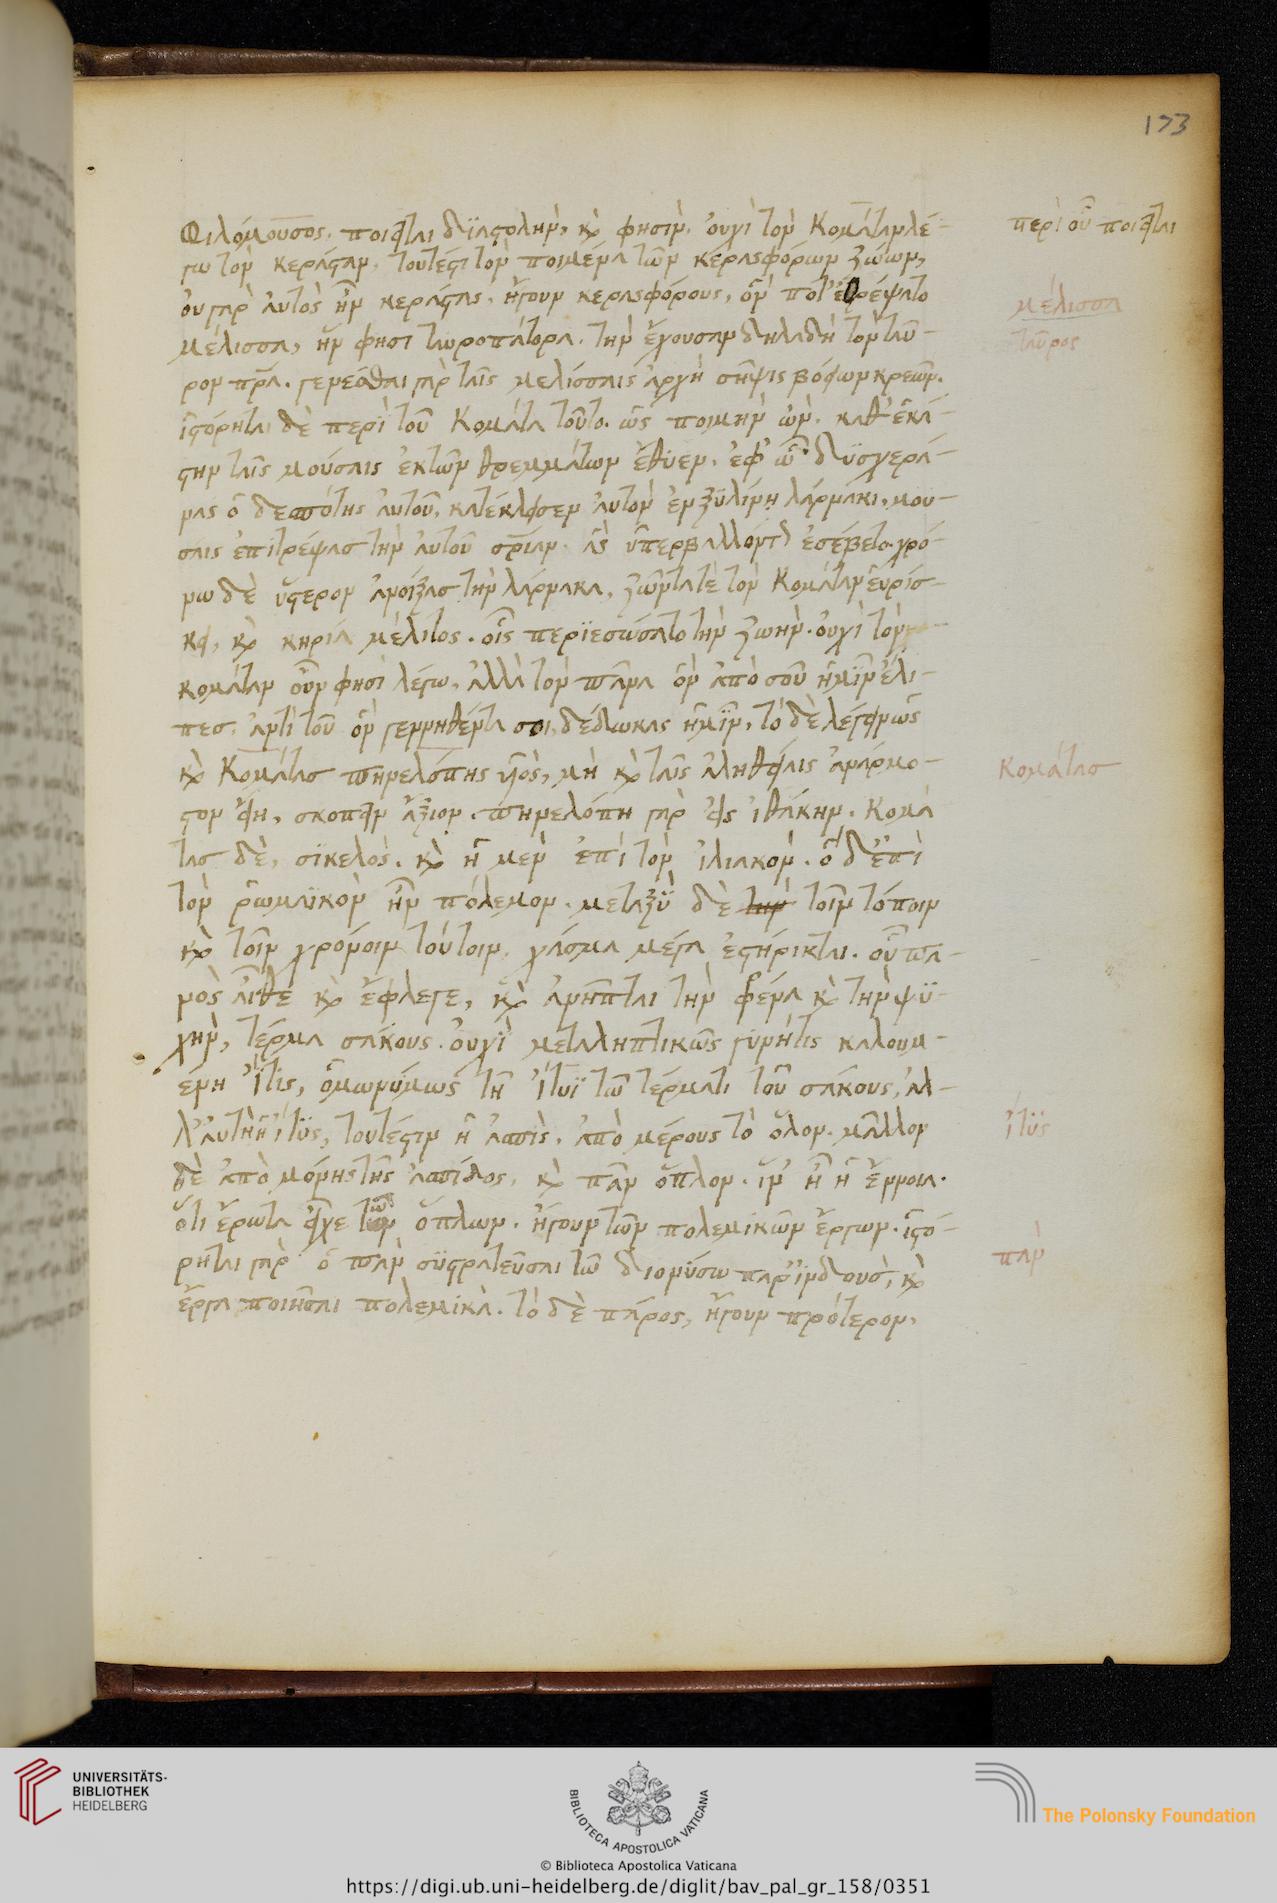 173
Φιλόμουσος. ποιεῖται διαστολὴν, καὶ φησὶν. οὐχὶ τὸν Κομάταν λέ- περὶ οὗ ποιεῖται
γω τὸν κεράσταν. τουτέστι τὸν ποιμένα τῶν κερασφόρων ζώων,
οὐ γὰρ αὐτὸς ἦν κεράστας, ἤγουν κερασφόρους, ὅν ποτ' ἐθρέψατο
μέλισσα, ἥν φησι ταυροπάτορα. τὴν ἔχουσαν δηλαδὴ τὸν ταῦ- μέλισσα
ρον πρα. γενέσθαι γὰρ ταῖς μελίσσαις ἀρχὴ σῆψις βόφων κρεῶν. ταῦρος
ἱστόρηται δὲ περὶ τοῦ Κομάτα τοῦτο. ὡς ποιμὴν ὢν. καθ' ἑκά-
στην ταῖς μούσαις ἐκ τῶν θρεμμάτων ἔθυεν. ἐφ' ᾧ δυσχερά-
νας ὁ δεσπότης αὐτοῦ, κατέκλεισεν αὐτὸν ἐν ξυλίνῃ λάρνακι, μού-
σαις ἐπιτρέψας τὴν αὐτοῦ σρίαν. ἃς ὑπερβαλλόντ ἐσέβετο. χρό-
νω δὲ ὕστερον ἀνοίξας τὴν λάρνακα, ζῶντά τε τὸν Κομάταν εὑρίσ-
κει, καὶ κηρία μέλιτος. οἷς περιεσώσατο τὴν ζωὴν. οὐχὶ τὸν
κομάταν οὖν φησὶ λέγω, ἀλλὰ τὸν πᾶνα ὃν ἀπὸ σοῦ ἡμῖν ἔλι-
πεσ. ἀντὶ τοῦ ὃν γεννηθέντα σοι, δέδωκας ἡμῖν, τὸ δὲ λέγειν ὡς
καὶ Κομάτας πηνελόπης υἱὸς, μὴ καὶ ταῖς ἀληθείαις ἀνάρμο- Κομάτας
στον εἴη, σκοπεῖν ἄξιον. πηνελόπη γὰρ εἰς ἰθάκην. Κομά
τας δὲ, σικελὸς. καὶ ἡ μὲν ἐπὶ τὸν ἰλιακὸν. ὁ δ' ἐπὶ
τὸν ῥωμαϊκὸν ἦν πόλεμον. μεταξὺ δὲ τὴν τοῖν τόποιν
καὶ τοῖν χρόνοιν τούτοιν. χάσμα μέγα ἐστήρικται. οὗ πα-
νὸς αἶθε καὶ ἔφλεγε, καὶ ἀνῆπται τὴν φρένα καὶ τὴν ψυ-
χὴν, τέρμα σάκους. οὐχὶ μεταληπτικῶς γυνή τις καλουμ-
ένη Ἴτις, ὁμωνύμως τῇ ἴτυϊ τῷ τέρματι τοῦ σάκους, ἀλ-
λ' αὐτὴ ἡ ἴτυς, τουτέστιν ἡ ἀσπὶς. ἀπὸ μέρους τὸ ὅλον. μᾶλλον ἴτυς
δὲ ἀπὸ μόνης τῆς ἀσπίδος, καὶ πᾶν ὅπλον. ἵν' ᾖ ἡ ἔννοια.
ὅτι ἔρωτα εἶχε τῶν ὅπλων. ἤγουν τῶν πολεμικῶν ἔργων. ἱστό-
ρηται γὰρ ὁ πὰν συστρατεῦσαι τῷ διονύσω παρ' ἰνδουσ, καὶ πὰν
ἔργα ποιῆσαι πολεμικὰ. τὸ δὲ πάρος, ἤγουν πρότερον.
UNIVERSITÄTS-
BIBLIOTHEK
HEIDELBERG
BIBLIOTECA APOSTOLICA VATICANA
The Polonsky Foundation
© Biblioteca Apostolica Vaticana
https://digi.ub.uni-heidelberg.de/diglit/bav_pal_gr_158/0351